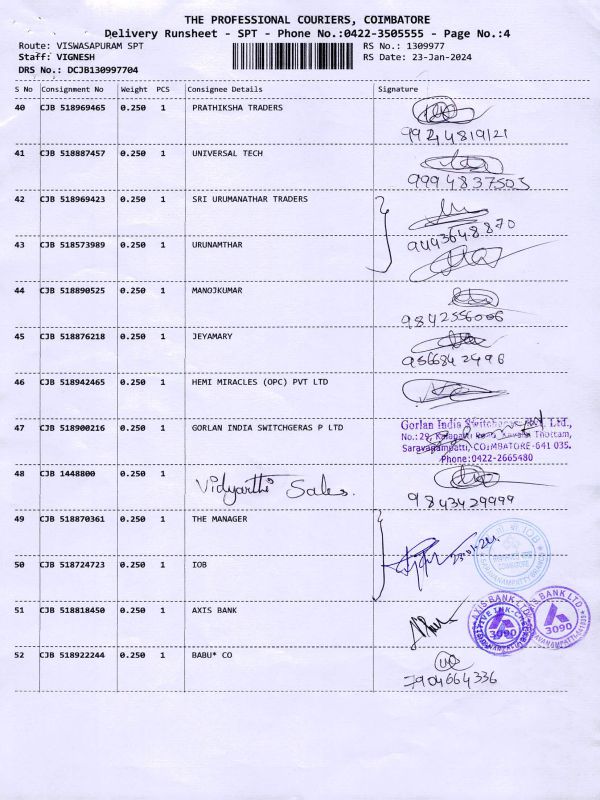 THE PROFESSIONAL COURIERS, COIMBATORE
Delivery Runsheet - SPT - Phone No.:0422-3505555 - Page No.:4
Route: VISWASAPURAM SPT RS No.: 1309977
Staff: VIGNESH RS Date: 23-Jan-2024
DRS No.: DCJB130997704
S No Consignment No Weight PCS Consignee Details Signature
40 CJB 518969465 0.250 1 PRATHIKSHA TRADERS
9924481912 1
41 CJB 518887457 0.250 1 UNIVERSAL TECH
9994837503
42 CJB 518969423 0.250 1 SRI URUMANATHAR TRADERS
9443648870
43 CJB 518573989 0.250 1 URUNAMTHAR
44 CJB 518890525 0.250 1 MANOJKUMAR
9842556006
45 CJB 518876218 0.250 1 JEYAMARY
9566842496
46 CJB 518942465 0.250 1 HEMI MIRACLES (OPC) PVT LTD
47 CJB 518900216 0.250 1 GORLAN INDIA SWITCHGERAS P LTD
Gorlan India Switchgear Pvt. Ltd.,
No.: 29, Kalapatti Road, Thottam,
Saravanampatti, COIMBATORE-641 035.
Phone:0422-2665480
48 CJB 1448800 0.250 1 Vidyarthi Sales.
9843429999
49 CJB 518870361 0.250 1 THE MANAGER
23-01-24
50 CJB 518724723 0.250 1 IOB
IOB
COIMBATORE
SARAVANAMPATTY BRANCH
51 CJB 518818450 0.250 1 AXIS BANK
AXIS BANK LTD
3090
AXIS BANK LTD
3090
52 CJB 518922244 0.250 1 BABU* CO
7904664336